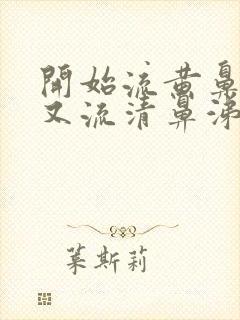 開始流黄鼻
又流清鼻涕
莱斯莉